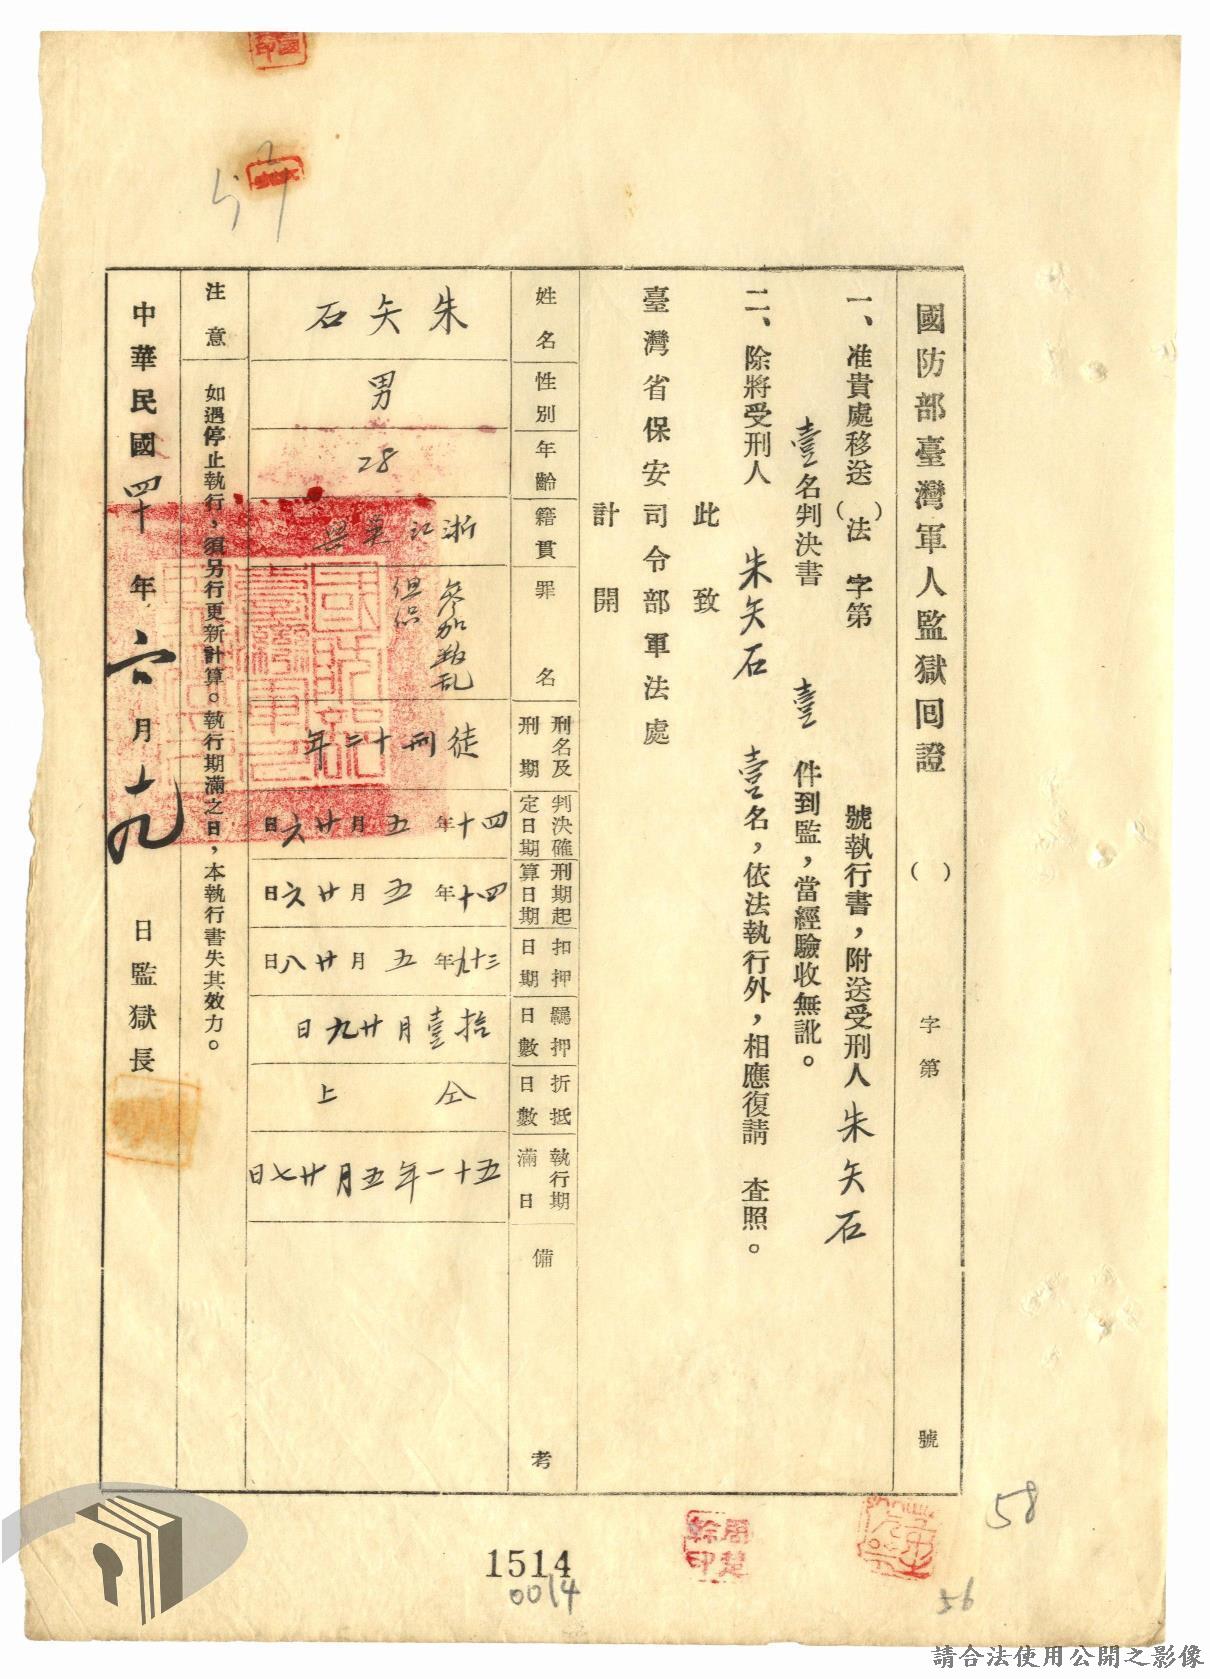 國防部臺灣軍人監獄回證
（ ）字第 號
一、准貴處移送（ ）法 字第 號執行書，附送受刑人朱矢石
壹名判決書 壹 件到監，當經驗收無訛。
二、除將受刑人 朱矢石 壹名，依法執行外，相應復請 查照。
此致
臺灣省保安司令部軍法處
計開
姓名
性別
年齡
籍貫
罪名
刑名及刑期
判決確定日期
刑期起算日期
扣押日期
羈押日數
折抵日數
執行期滿日
備考
朱矢石
男
28
浙江
參加叛乱
徒刑十二年
四十年五月廿六日
四十年五月廿六日
三十九年五月廿八日
拾壹月廿九日
仝上
五十一年五月廿七日
注意
如遇停止執行，須另行更新計算。執行期滿之日，本執行書失其效力。
中華民國四十年六月十九日監獄長
57
58
56
1514
0014
請合法使用公開之影像